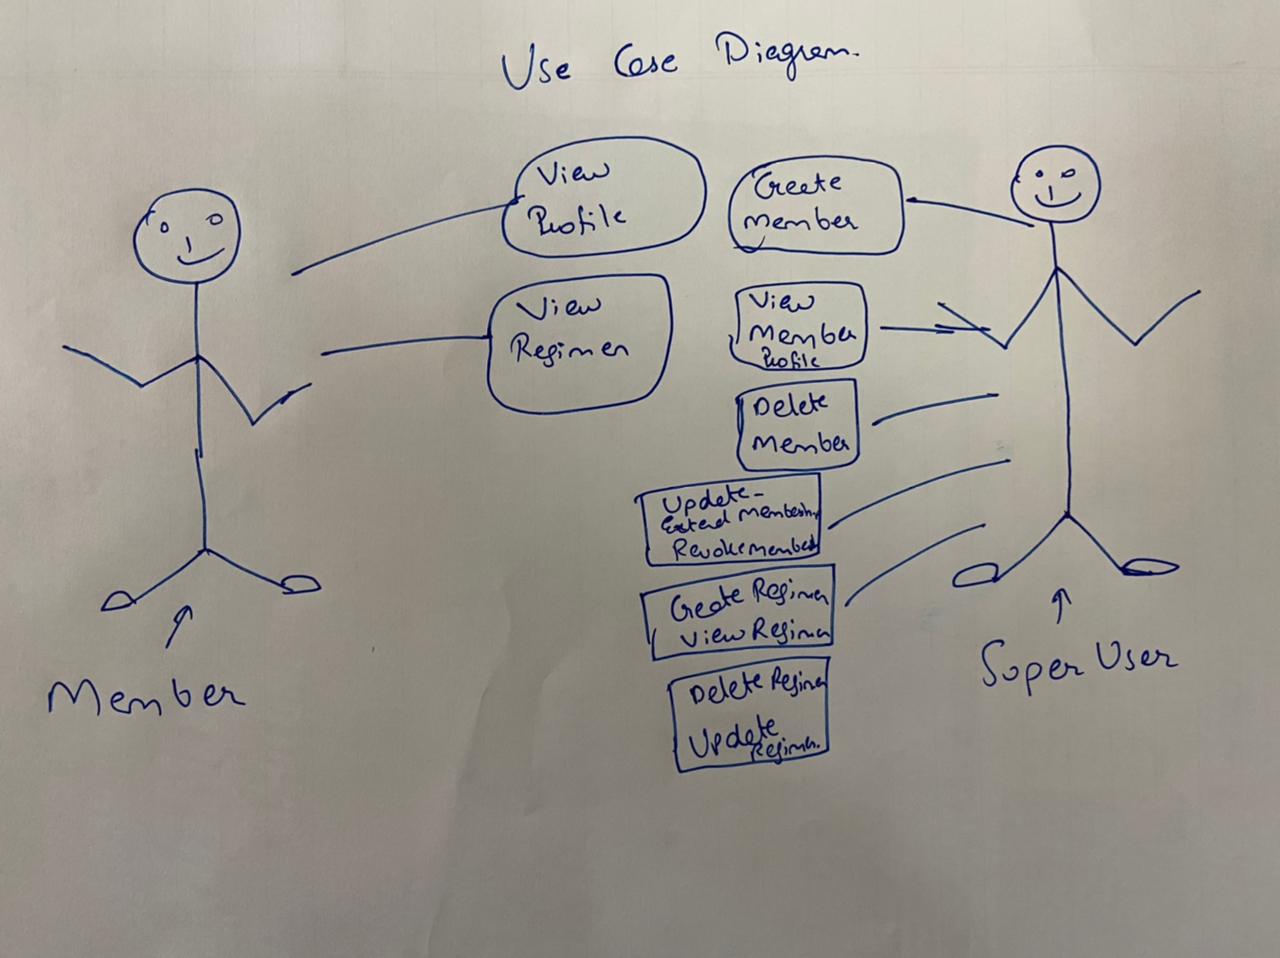 Use Case Diagram.
View
Profile
View
Regimen
Create
Member
View
Member
Profile
Delete
Member
Update-
Extend Membership
Revoke member
Create Regimen
View Regimen
Delete Regimen
Update
Regimen.
Member
Super User